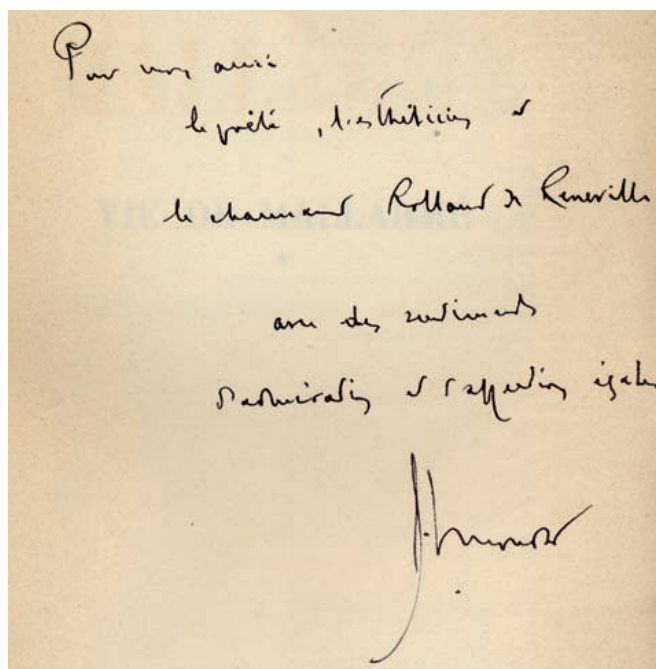 Pour mon ami
le poète, l'esthéticien et
le charmant Rolland de Reneville
avec des sentiments
d'admiration et d'affection égales
VIE DE MALLARMÉ